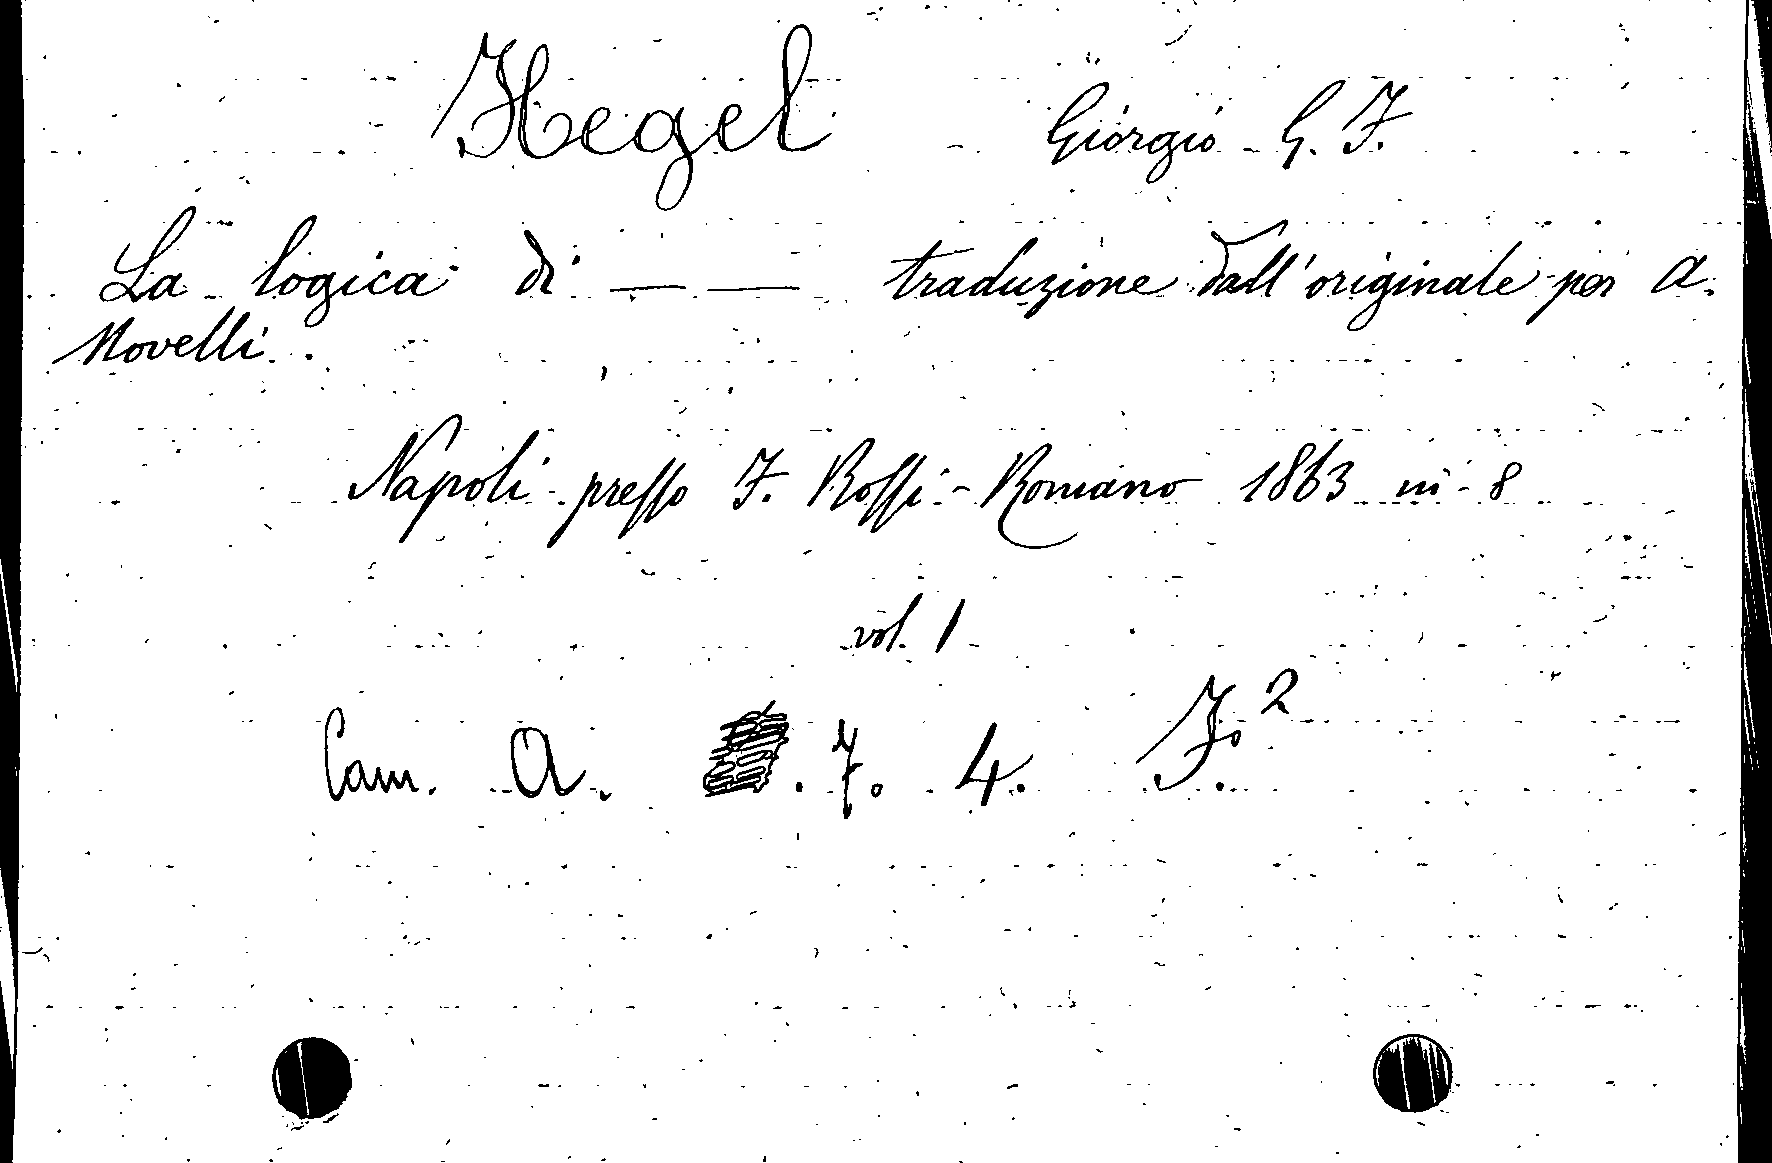 Hegel Giorgio G. F.
La logica di — — traduzione dall'originale per A.
Novelli.
Napoli presso F. Rossi-Romano 1863 in-8
vol. 1
Cam. A. . 7. 4. F.²